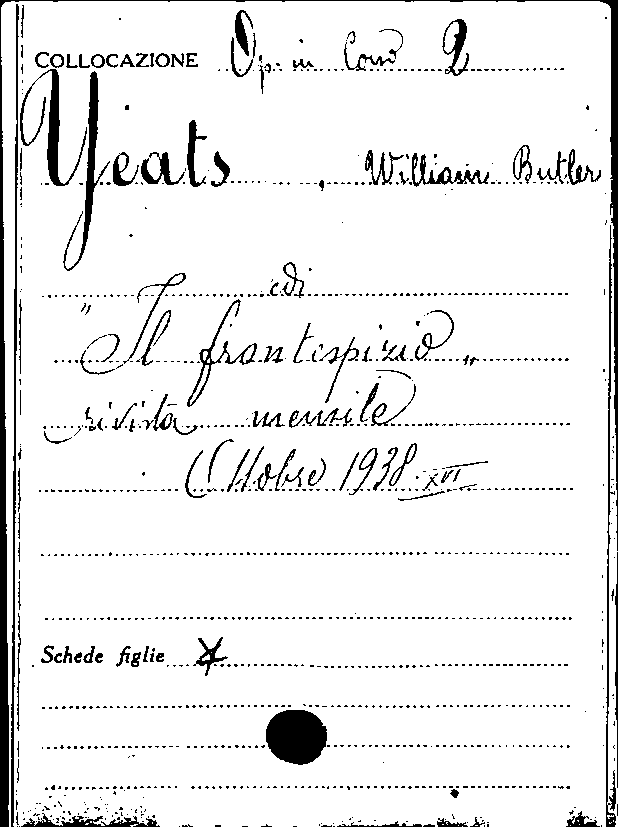 COLLOCAZIONE Op. in Cons 2
Yeats, William Butler
di
"Il frontespizio„
rivista mensile
Ottobre 1938 XVI
Schede figlie